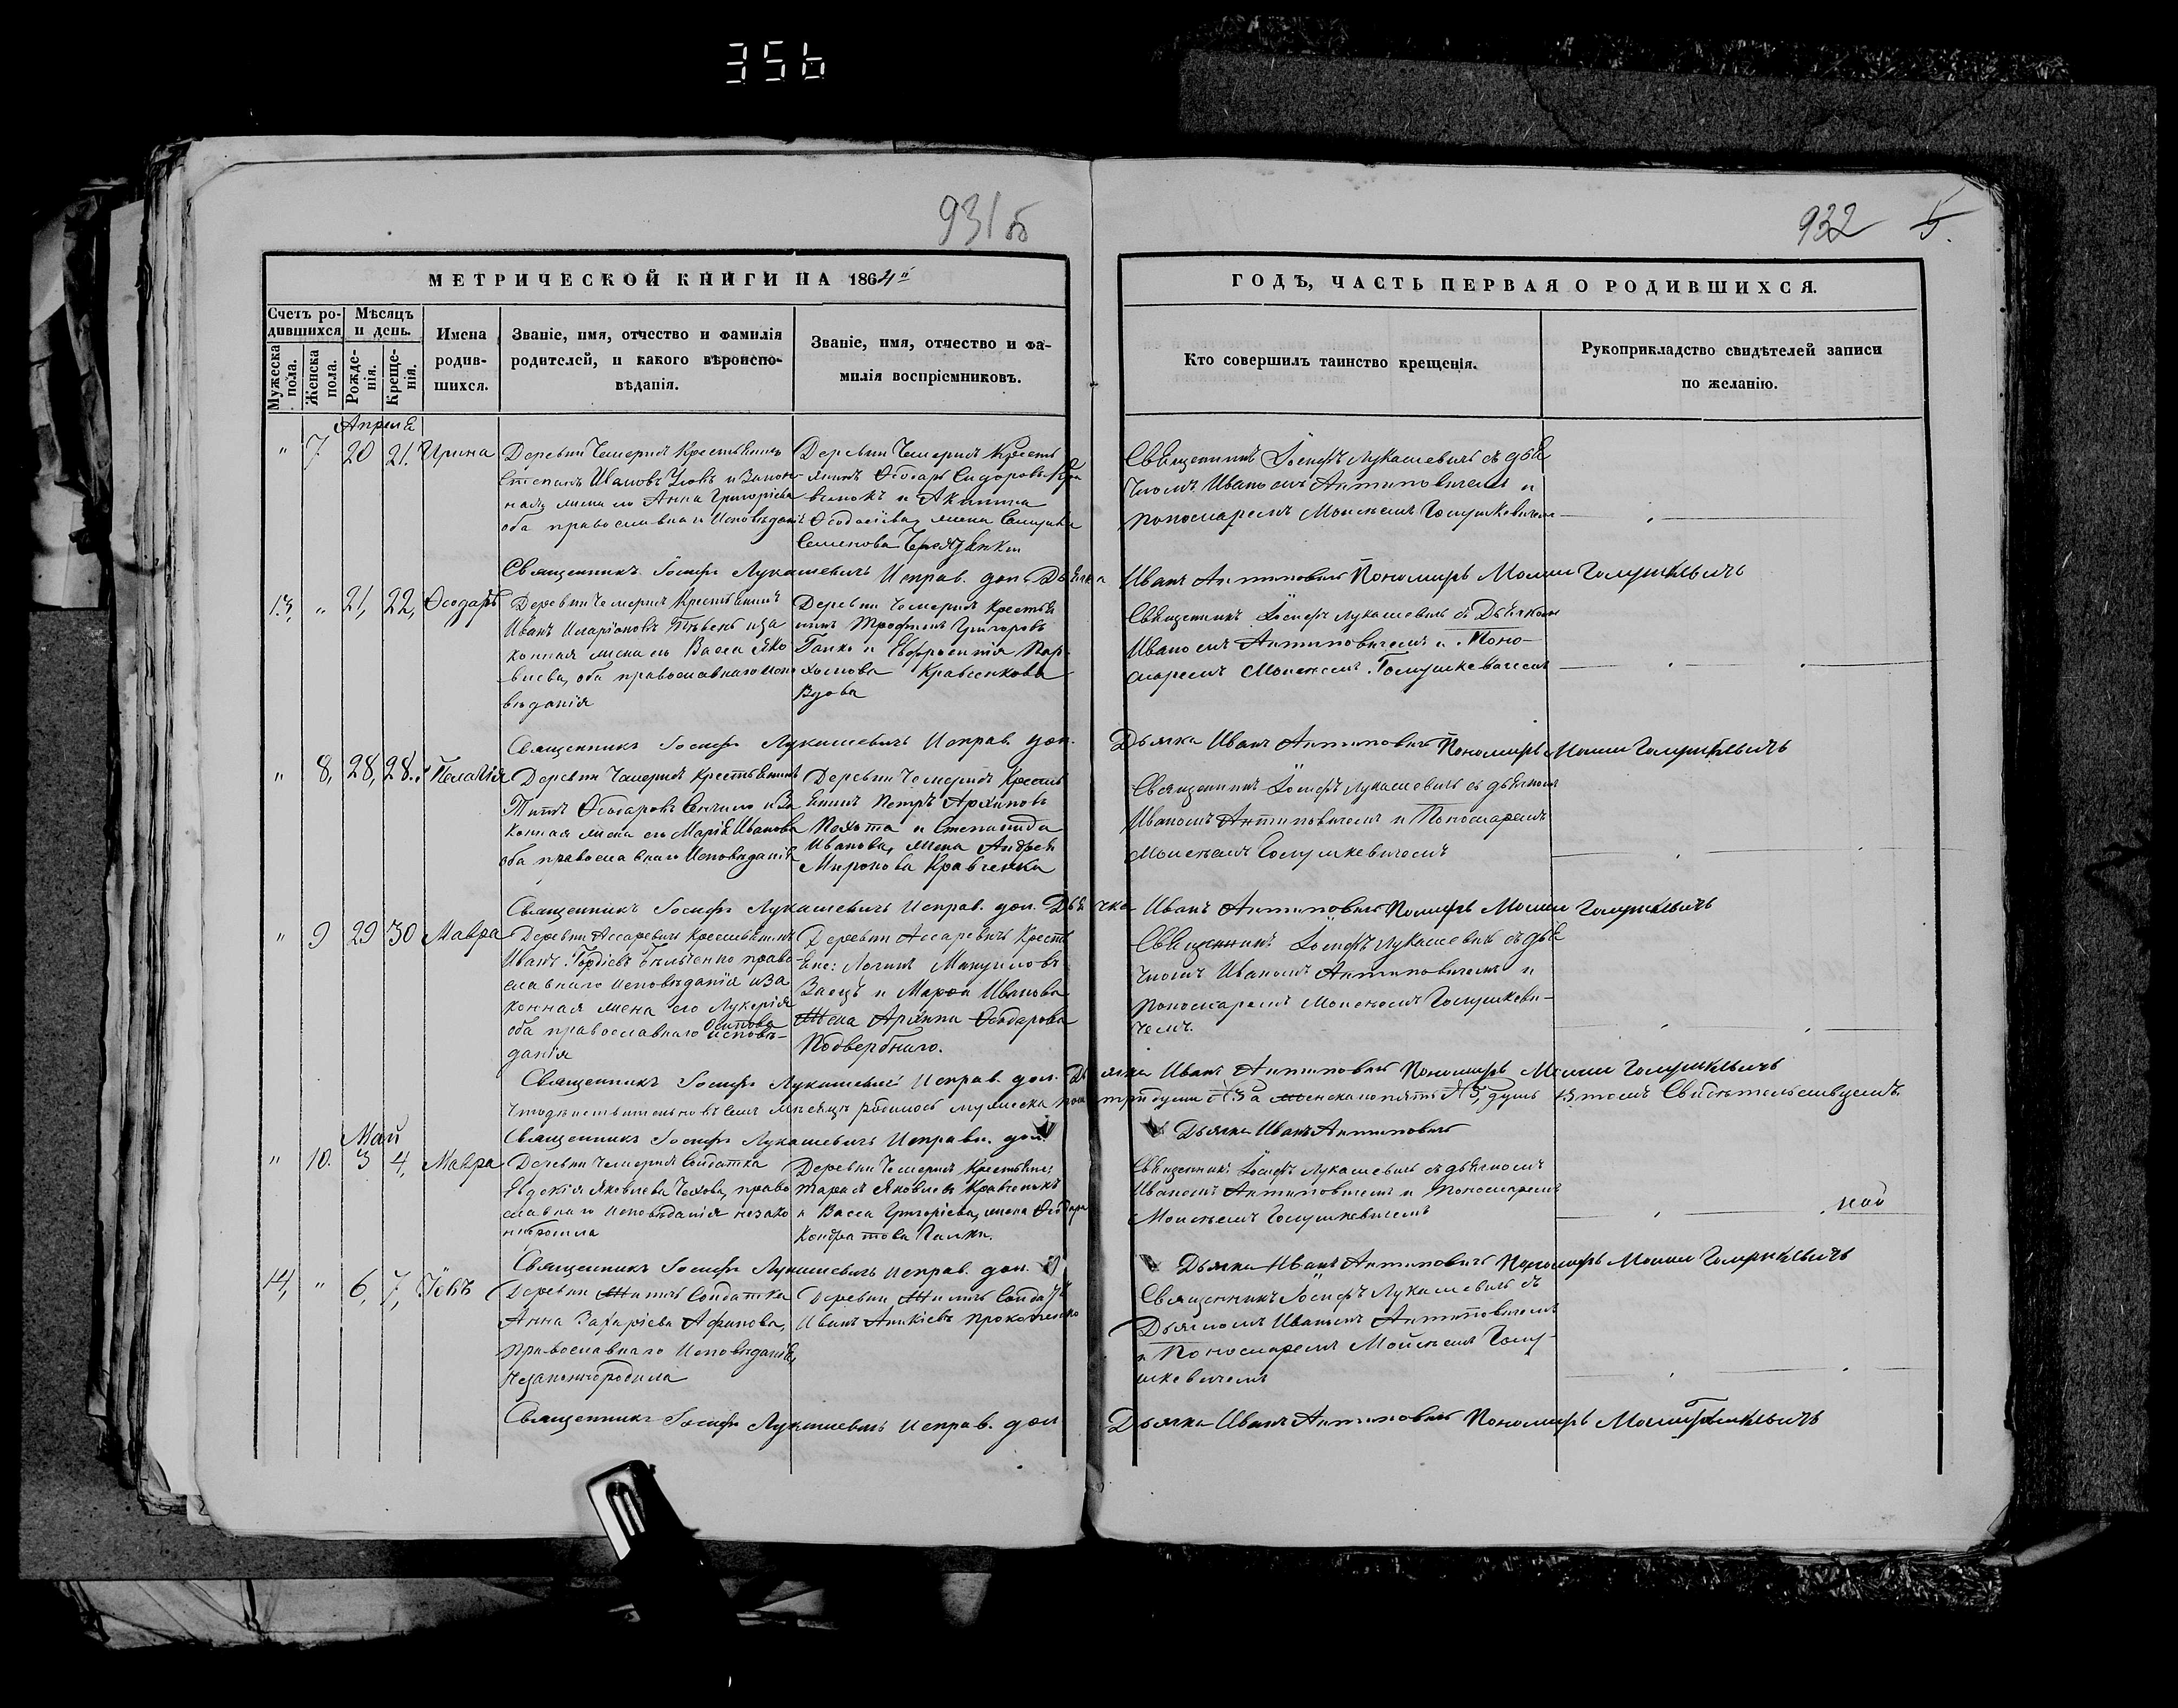 356
931 об
932 5.
МЕТРИЧЕСКОЙ КНИГИ НА 1864й
ГОДЪ, ЧАСТЬ ПЕРВАЯ О РОДИВШИХСЯ.
Счетъ ро-
дившихся
Мужеска пола.
Женска пола.
Мѣсяцъ
и день.
Рожде-
нія.
Креще-
нія.
Имена
родив-
шихся.
Званіе, имя, отчество и фамилія
родителей, и какого вѣроиспо-
вѣданія.
Званіе, имя, отчество и фа-
милія воспріемниковъ.
Кто совершилъ таинство крещенія.
Рукоприкладство свидѣтелей записи
по желанію.
Апреля
" 7 20 21. Ирина
Деревни Чемеридъ Крестьянинъ
Степанъ Ивановъ и Закон-
ная жена его Анна Григоріева
оба православнаго Исповѣданія
Деревни Чемеридъ Кресть
янинъ Ѳеодоръ Сидоровъ
и Акилина
Ѳеодосіева, жена
Семенова
Священникъ Іосифъ Лукашевичъ съ дья
чкомъ Иваномъ Антиповичемъ и
пономаремъ Моисеемъ Голушкевичемъ
Священникъ Іосифъ Лукашевичъ Исправ. дол. Дьячка Иванъ Антиповичъ Пономарь Моисей Голушкевичъ
13, " 21, 22, Ѳеодоръ
Деревни Чемеридъ Крестьянинъ
Иванъ Иларіоновъ и за
конная жена его Васса Яко
влева, оба православнаго испо
вѣданія
Деревни Чемеридъ Крестья
нинъ Трофимъ Григоровъ
Галко и Евфросинія Пар-
хомова Кравченкова
Вдова
Священникъ Іосифъ Лукашевичъ съ Дьячкомъ
Иваномъ Антиповичемъ и Поно-
маремъ Моисеемъ Голушкевичемъ
Священникъ Іосифъ Лукашевичъ Исправ. дол. Дьячка Иванъ Антиповичъ Пономарь Моисей Голушкевичъ
" 8, 28, 28. Пелагія
Деревни Чемеридъ Крестьянинъ
Титъ Ѳеодоровъ и За
конная жена его Марія Иванова
оба православнаго Исповѣданія
Деревни Чемеридъ Кресть
янинъ Петръ Архиповъ
Пехота и Степанида
Иванова, жена Андрея
Миронова Кравченка
Священникъ Іосифъ Лукашевичъ съ дьячкомъ
Иваномъ Антиповичемъ и Пономаремъ
Моисеемъ Голушкевичемъ
Священникъ Іосифъ Лукашевичъ Исправ. дол. Дьячка Иванъ Антиповичъ Пономарь Моисей Голушкевичъ
" 9 29 30 Мавра
Деревни Асаревичъ Крестьянинъ
Иванъ Гордіевъ право
славнаго исповѣданія и за
конная жена его Лукерія
Осипова
оба православнаго исповѣ-
данія
Деревни Асаревичъ Кресть
яне: Логинъ Мануиловъ
Заецъ и Марѳа Иванова
жена Архипа Ѳеодорова
Подвербнаго.
Священникъ Іосифъ Лукашевичъ съ дья
чкомъ Иваномъ Антиповичемъ и
пономаремъ Моисеемъ Голушкеви-
чемъ.
Священникъ Іосифъ Лукашевичъ Исправ. дол. Дьячка Иванъ Антиповичъ Пономарь Моисей Голушкевичъ
Что дѣйствительно въ семъ мѣсяцѣ родилось мужеска пола три души № 3 а женска по пять № 5, душъ въ томъ Свидѣтельствуемъ.
Священникъ Іосифъ Лукашевичъ Исправ. дол. Дьячка Иванъ Антиповичъ
Май
" 10. 3 4, Мавра
Деревни Чемеридъ Солдатка
Евдокія Яковлева Чехова, право
славнаго исповѣданія незако
Деревни Чемеридъ Крестьяне:
Тарасъ Яковлевъ Кравченокъ
и Васса Григоріева, жена Ѳеодора
Кондратова Галки.
Священникъ Іосифъ Лукашевичъ съ дьячкомъ
Иваномъ Антиповичемъ и Пономаремъ
Моисеемъ Голушкевичемъ
май
Священникъ Іосифъ Лукашевичъ Исправ. дол. Дьячка Иванъ Антиповичъ Пономарь Моисей Голушкевичъ
14, " 6, 7, Іовъ
Деревни Солдатка
Анна Захаріева
Православнаго Исповѣданія,
Незаконнородила
Деревни
Иванъ Прокопенко
Священникъ Іосифъ Лукашевичъ съ
Дьячкомъ Иваномъ Антиповичемъ
и Пономаремъ Моисеемъ Голу-
шкевичемъ
Священникъ Іосифъ Лукашевичъ Исправ. дол. Дьячка Иванъ Антиповичъ Пономарь Моисей Голушкевичъ